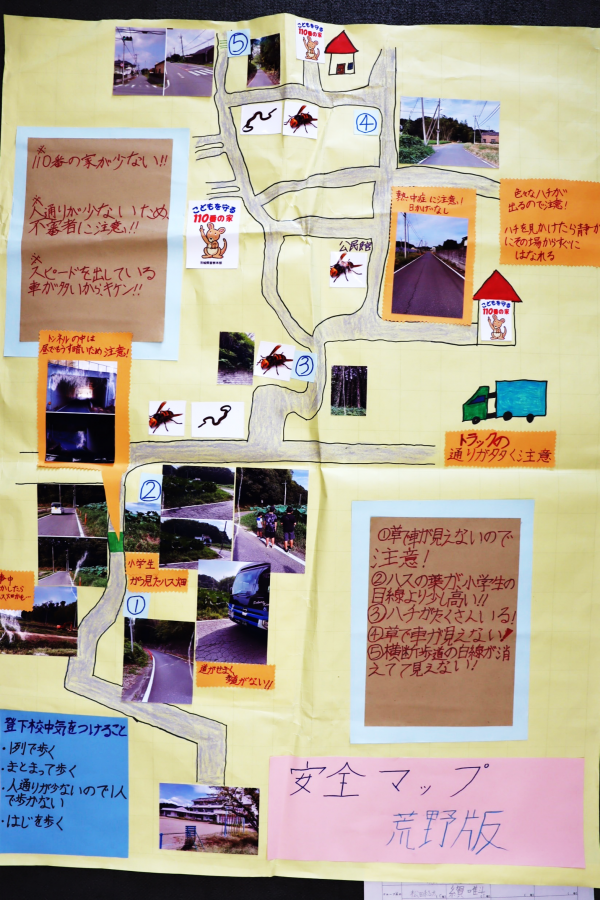 ⑤
こどもを守る
110番の家
④
※
110番の家が少ない!!
※
人通りが少ないため
不審者に注意!!
※
スピードを出している
車が多いから、キケン!!
こどもを守る
110番の家
公民館
熱中症に注意!
日かげなし
色々なハチが
出るので注意!
ハチを見かけたら静か
にその場からすぐに
はなれる
こどもを守る
110番の家
トンネルの中は
昼でもうす暗いため注意!
③
トラックの
通りが多く注意
②
小学生
から見たハス畑
①
道がせまく
歩道がない!!
①草で車が見えないので
注意!
②ハスの葉が小学生の
目線より少し高い!!
③ハチがたくさんいる!
④草で車が見えない!
⑤横断歩道の白線が消
えてて見えない!
登下校中気をつけること
・1列で歩く
・まとまって歩く
・人通りが少ないので1人
で歩かない
・はじを歩く
安全マップ
荒野版